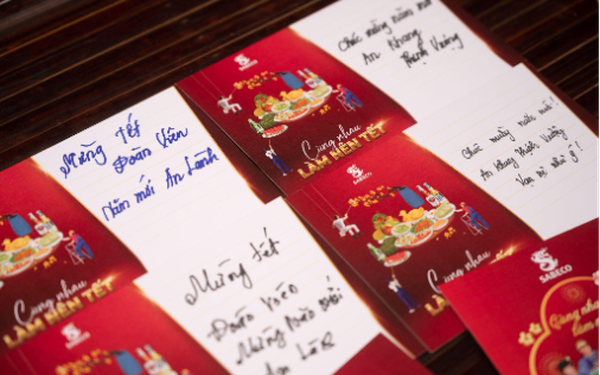 Mừng Tết
Đoàn Viên
Năm mới An Lành
Cùng nhau
LÀM NÊN TẾT
SABECO
Chúc mừng năm mới
An Khang
Thịnh Vượng
Cùng nhau
LÀM NÊN TẾT
SABECO
Mừng tết
Đoàn
Những
An Lành
Cùng nhau
LÀM NÊN TẾT
Chúc mừng năm mới!
An khang thịnh vượng
Vạn sự như ý!
Cùng nhau
LÀM NÊN TẾT
SABECO
Cùng nhau